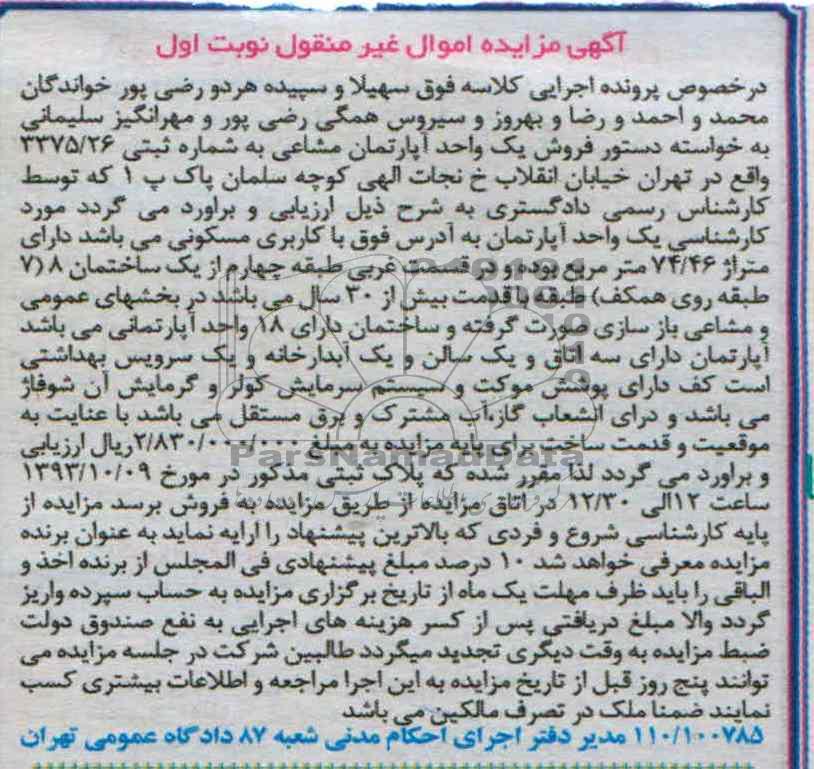 آگهی مزایده اموال غیر منقول نوبت اول
درخصوص پرونده اجرایی کلاسه فوق سهیلا و سپیده هردو رضی پور خواندگان
محمد و احمد و رضا و بهروز و سیروس همگی رضی پور و مهرانگیز سلیمانی
به خواسته دستور فروش یک واحد آپارتمان مشاعی به شماره ثبتی ۳۳۷۵/۲۶
واقع در تهران خیابان انقلاب خ نجات الهی کوچه سلمان پاک پ ۱ که توسط
کارشناس رسمی دادگستری به شرح ذیل ارزیابی و براورد می گردد مورد
کارشناسی یک واحد آپارتمان به آدرس فوق با کاربری مسکونی می باشد دارای
متراژ ۷۴/۴۶ متر مربع بوده و در قسمت غربی طبقه چهارم از یک ساختمان ۸ (۷
طبقه روی همکف) طبقه با قدمت بیش از ۳۰ سال می باشد در بخشهای عمومی
و مشاعی باز سازی صورت گرفته و ساختمان دارای ۱۸ واحد آپارتمانی می باشد
آپارتمان دارای سه اتاق و یک سالن و یک آبدارخانه و یک سرویس بهداشتی
است کف دارای پوشش موکت و سیستم سرمایش کولر و گرمایش آن شوفاژ
می باشد و درای انشعاب گاز،آب مشترک و برق مستقل می باشد با عنایت به
موقعیت و قدمت ساخت برای پایه مزایده به مبلغ ۲/۸۳۰/۰۰۰/۰۰۰ریال ارزیابی
ParsNamadData
و براورد می گردد لذا مقرر شده که پلاک ثبتی مذکور در مورخ ۱۳۹۳/۱۰/۰۹
ساعت ۱۲الی ۱۲/۳۰ در اتاق مزایده از طریق مزایده به فروش برسد مزایده از
پایه کارشناسی شروع و فردی که بالاترین پیشنهاد را ارایه نماید به عنوان برنده
مزایده معرفی خواهد شد ۱۰ درصد مبلغ پیشنهادی فی المجلس از برنده اخذ و
الباقی را باید ظرف مهلت یک ماه از تاریخ برگزاری مزایده به حساب سپرده واریز
گردد والا مبلغ دریافتی پس از کسر هزینه های اجرایی به نفع صندوق دولت
ضبط مزایده به وقت دیگری تجدید میگردد طالبین شرکت در جلسه مزایده می
توانند پنج روز قبل از تاریخ مزایده به این اجرا مراجعه و اطلاعات بیشتری کسب
نمایند ضمنا ملک در تصرف مالکین می باشد
۱۱۰/۱۰۰۷۸۵ مدیر دفتر اجرای احکام مدنی شعبه ۸۷ دادگاه عمومی تهران